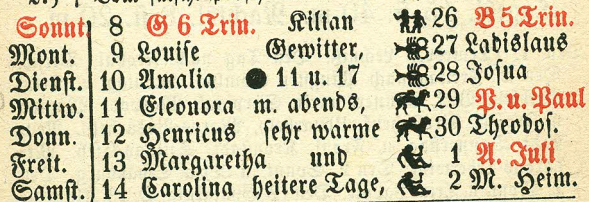 Sonnt. 8 G 6 Trin. Kilian 26 B 5 Trin.
Mont. 9 Louise Gewitter, 27 Ladislaus
Dienst. 10 Amalia 11 u. 17 28 Josua
Mittw. 11 Eleonora m. abends, 29 P. u. Paul
Donn. 12 Henricus sehr warme 30 Theodos.
Freit. 13 Margaretha und 1 A. Juli
Samst. 14 Carolina heitere Tage, 2 M. Heim.